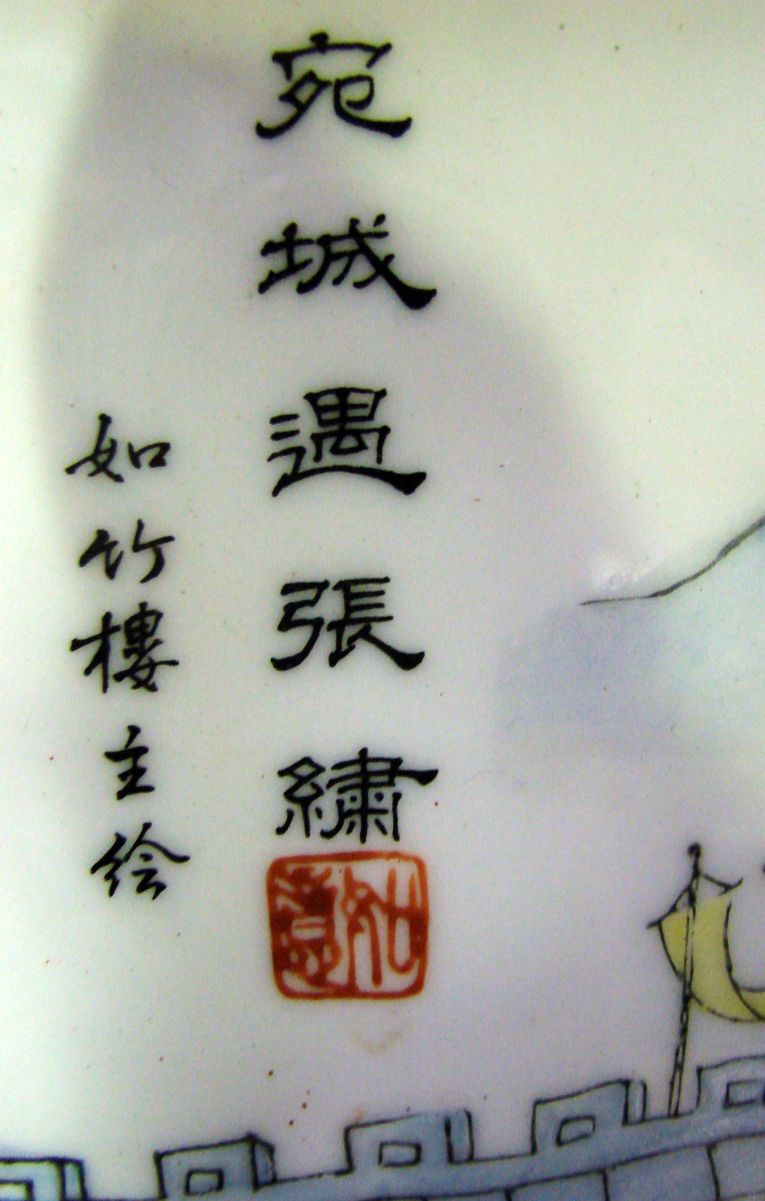 宛城遇張繡
如竹樓主绘
如意